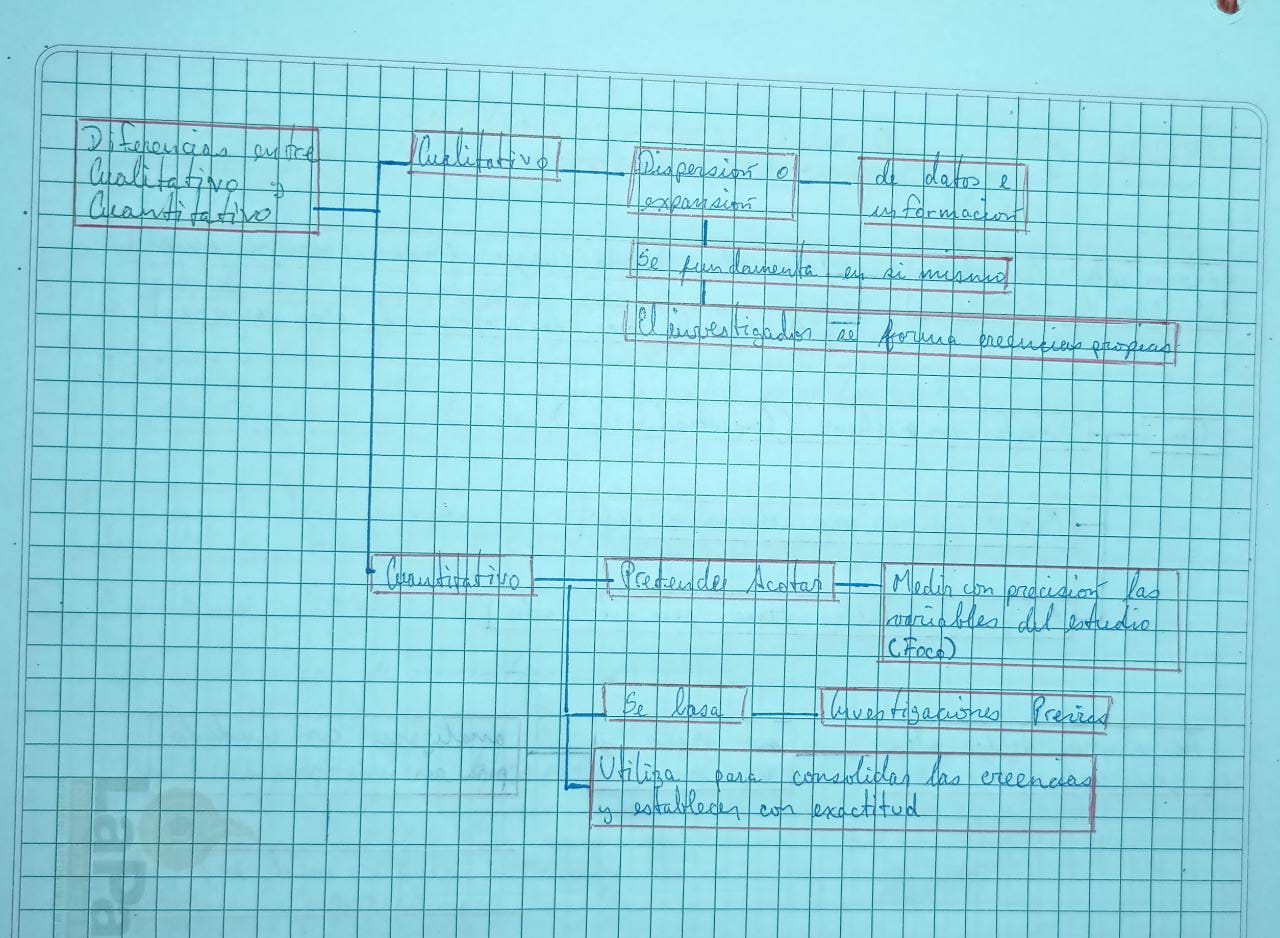 Diferencias entre
Cualitativo y
Cuantitativo
Cualitativo
Dispersión o
expansión
de datos e
información
Se fundamenta en si mismo
El investigador se forma creencias propias
Cuantitativo
Pretender Acotar
Medir con precisión las
variables del estudio
(Foco)
Se basa
Investigaciones Previas
Utiliza para consolidar las creencias
y establecer con exactitud